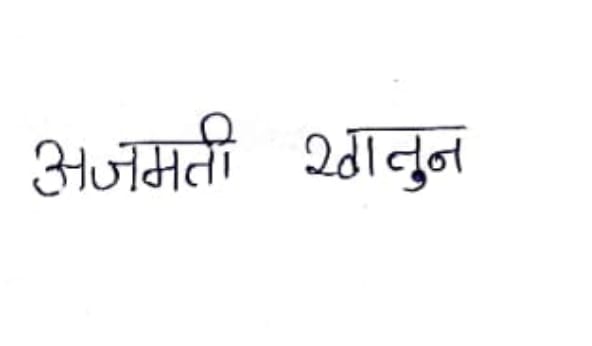 अजमती खातुन